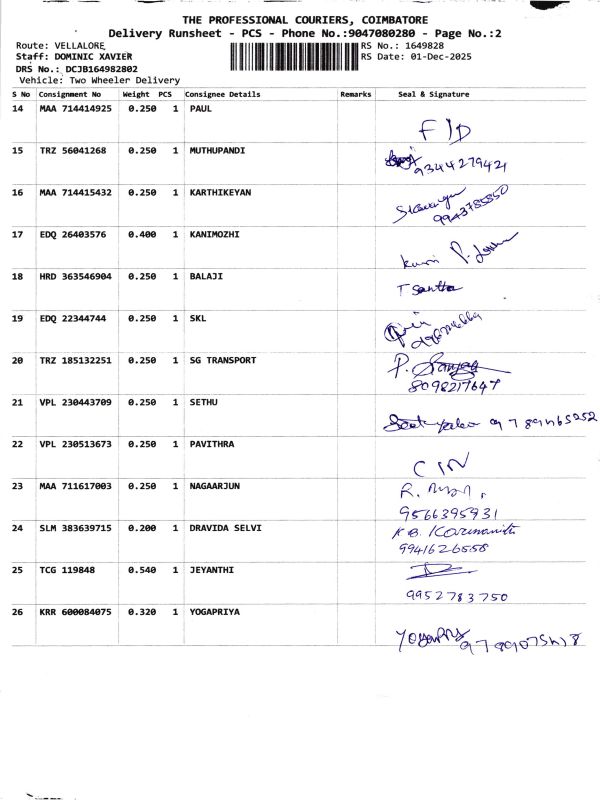 THE PROFESSIONAL COURIERS, COIMBATORE
Delivery Runsheet - PCS - Phone No.:9047080280 - Page No.:2
Route: VELLALORE
RS No.: 1649828
Staff: DOMINIC XAVIER
RS Date: 01-Dec-2025
DRS No.: DCJB164982802
Vehicle: Two Wheeler Delivery
S No Consignment No Weight PCS Consignee Details Remarks Seal & Signature
14 MAA 714414925 0.250 1 PAUL
F/D
15 TRZ 56041268 0.250 1 MUTHUPANDI
9344279421
16 MAA 714415432 0.250 1 KARTHIKEYAN
9943785850
17 EDQ 26403576 0.400 1 KANIMOZHI
18 HRD 363546904 0.250 1 BALAJI
T Santha
19 EDQ 22344744 0.250 1 SKL
20 TRZ 185132251 0.250 1 SG TRANSPORT
8098217647
21 VPL 230443709 0.250 1 SETHU
22 VPL 230513673 0.250 1 PAVITHRA
23 MAA 711617003 0.250 1 NAGAARJUN
9566395931
24 SLM 383639715 0.200 1 DRAVIDA SELVI
9941626558
25 TCG 119848 0.540 1 JEYANTHI
9952783750
26 KRR 600084075 0.320 1 YOGAPRIYA